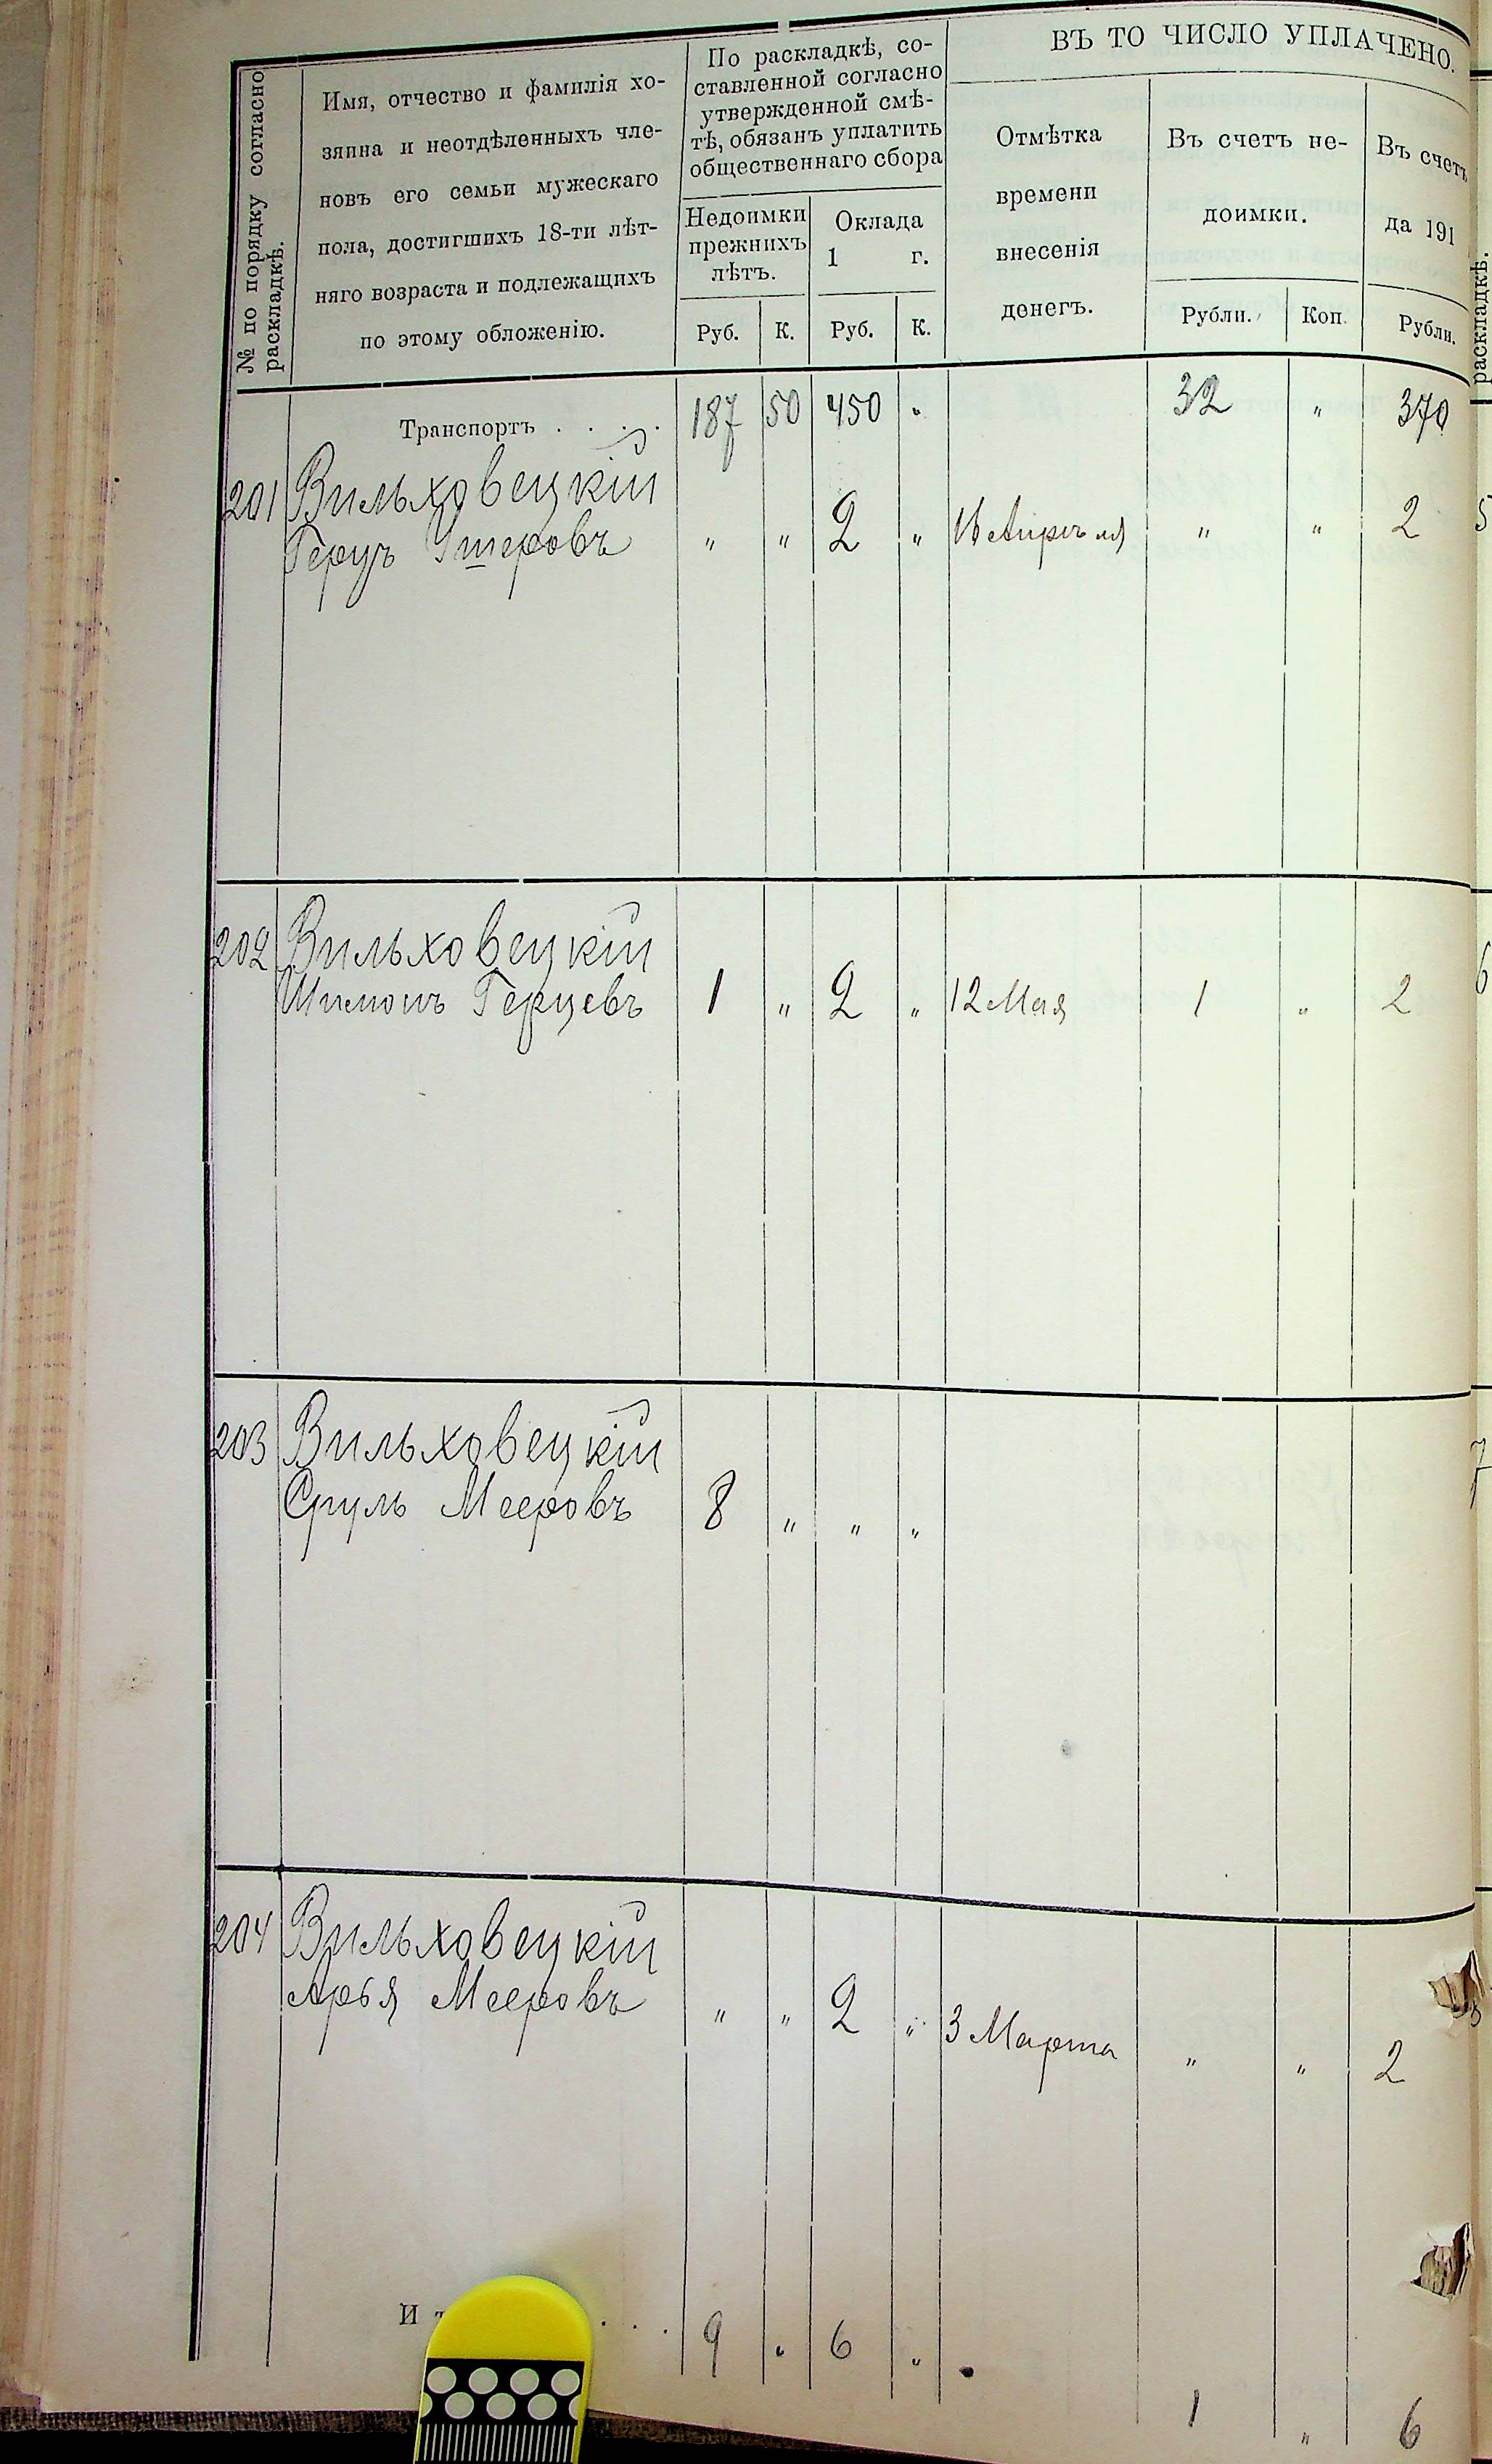 № по порядку согласно
раскладкѣ.
Имя, отчество и фамилія хо-
зяина и неотдѣленныхъ чле-
новъ его семьи мужескаго
пола, достигшихъ 18-ти лѣт-
няго возраста и подлежащихъ
по этому обложенію.
По раскладкѣ, со-
ставленной согласно
утвержденной смѣ-
тѣ, обязанъ уплатить
общественнаго сбора
Недоимки
прежнихъ
лѣтъ.
Оклада
1 г.
Руб. К. Руб. К.
ВЪ ТО ЧИСЛО УПЛАЧЕНО.
Отмѣтка
времени
внесенія
денегъ.
Въ счетъ не-
доимки.
Рубли. Коп.
Въ счетъ
да 191
Рубли.
раскладкѣ.
Транспортъ . . . . 187 50 450 " 32 " 370
201 Вильховецкій
Герцъ Ушеровъ " " 2 " Апрѣля " " 2
202 Вильховецкій
Шимонъ Герцевъ 1 " 2 " 12 Мая 1 " 2
203 Вильховецкій
Сруль Мееровъ 8 " " "
204 Вильховецкій
Арья Мееровъ " " 2 " 3 Марта " " 2
И . . . 9 " 6 " 1 " 6